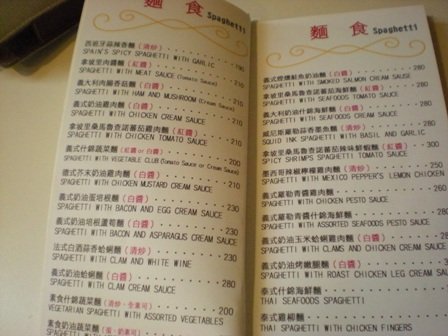 麵 食 Spaghetti
西班牙蒜辣香麵 (清炒)
SPAIN'S SPICY SPAGHETTI WITH GARLIC 190
拿坡里肉醬麵 (紅醬)
SPAGHETTI WITH MEAT SAUCE (Tomato Sauce) 210
義大利肉腸香菇麵 (白醬)
SPAGHETTI WITH HAM AND MUSHROOM (Cream Sauce) 210
義式奶油雞肉麵 (白醬)
SPAGHETTI WITH CHICKEN CREAM SAUCE 210
拿坡里桑馬魯查諾蕃茄雞肉麵 (紅醬)
SPAGHETTI WITH CHICKEN TOMATO SAUCE 210
義式什錦蔬菜麵 (紅醬 or 白醬)
SPAGHETTI WITH VEGETABLE CLUB (Tomato Sauce or Cream Sauce) 200
德式芥末奶油雞肉麵 (白醬)
SPAGHETTI WITH CHICKEN MUSTARD CREAM SAUCE 210
義式奶油蛋培根麵 (白醬)
SPAGHETTI WITH BACON AND EGG CREAM SAUCE 230
義式奶油培根蘆筍麵 (白醬)
SPAGHETTI WITH BACON AND ASPARAGUS CREAM SAUCE 230
法式白酒蒜香蛤蜊麵 (清炒)
SPAGHETTI WITH CLAM AND WHITE WINE 230
義式奶油蛤蜊麵 (白醬)
SPAGHETTI WITH CLAM CREAM SAUCE 230
素食什錦蔬菜麵 (清炒
VEGETARIAN SPAGHETTI WITH ASSORTED VEGETABLES 200
素食奶油蔬菜麵
麵 食 Spaghetti
義式煙燻鮭魚奶油麵 (白醬)
SPAGHETTI WITH SMOKED SALMON CREAM SAUCE 280
拿坡里桑馬魯查諾蕃茄海鮮麵 (紅醬)
SPAGHETTI WITH SEAFOODS TOMATO SAUCE
義大利奶油什錦海鮮麵 (白醬)
SPAGHETTI WITH SEAFOODS CREAM SAUCE
威尼斯羅勒蒜香墨魚麵 (清炒)
SQUID INK SPAGHETTI WITH BASIL AND GARLIC
拿坡里桑馬魯查諾蕃茄辣味鮮蝦麵 (紅醬)
SPICY SHRIMPS SPAGHETTI TOMATO SAUCE
墨西哥辣椒檸檬雞肉麵 (清炒)
SPAGHETTI WITH MEXICO PEPPER'S LEMON CHICKEN 250
義式羅勒青醬雞肉麵
SPAGHETTI WITH CHICKEN PESTO SAUCE
義式羅勒青醬什錦海鮮麵
SPAGHETTI WITH ASSORTED SEAFOODS PESTO SAUCE
義式奶油玉米蛤蜊雞肉麵 (白醬)
SPAGHETTI WITH CLAMS AND CHICKEN CREAM SAUCE
義式奶油烤嫩腿麵 (白醬)
SPAGHETTI WITH ROAST CHICKEN LEG CREAM SAUCE
泰式什錦海鮮麵
THAI SEAFOODS SPAGHETTI
泰式雞柳麵
THAI SPAGHETTI WITH CHICKEN FINGERS